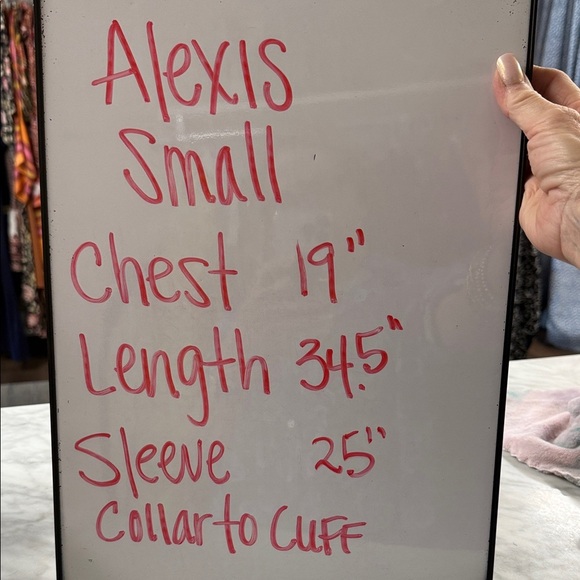 Alexis
Small
Chest 19"
Length 34.5"
Sleeve 25"
Collar to CUFF